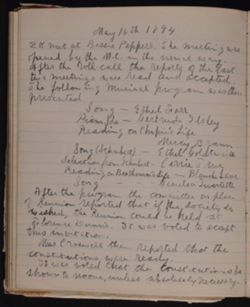 May 16th 1894
ZK met at Bessie Peppers. The meeting was
opened by the M.C. in the usual way.
After the Roll call the reports of the last
two meetings were read and accepted.
The following Musical program was then
presented.
Song — Ethel
Piano — Gertrude
Reading on Chopin's Life
Song (Schubert) — Ethel
Selection from Schubert — Carrie
Reading on Beethoven's Life — Blanche
Song — Quartette
After the program the committee on place
of Reunion reported that if the society so
wished, the Reunion could be held at
Florence. It was voted to accept
this invitation.
Miss then reported that the
constitutions were ready.
It was voted that the Constitution be
shown to none, unless absolutely necessary.